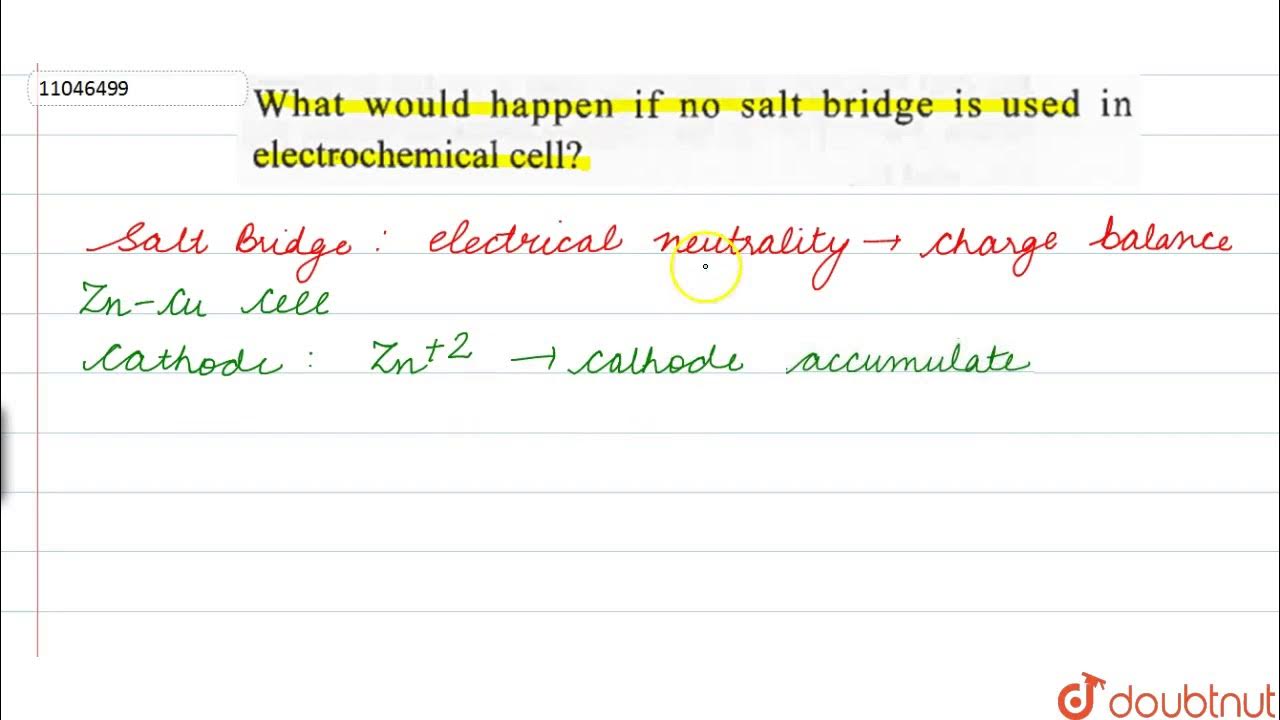 11046499
What would happen if no salt bridge is used in
electrochemical cell?
Salt Bridge : electrical neutrality → charge balance
Zn-Cu cell
Cathode : Zn+2 → cathode accumulate
doubtnut